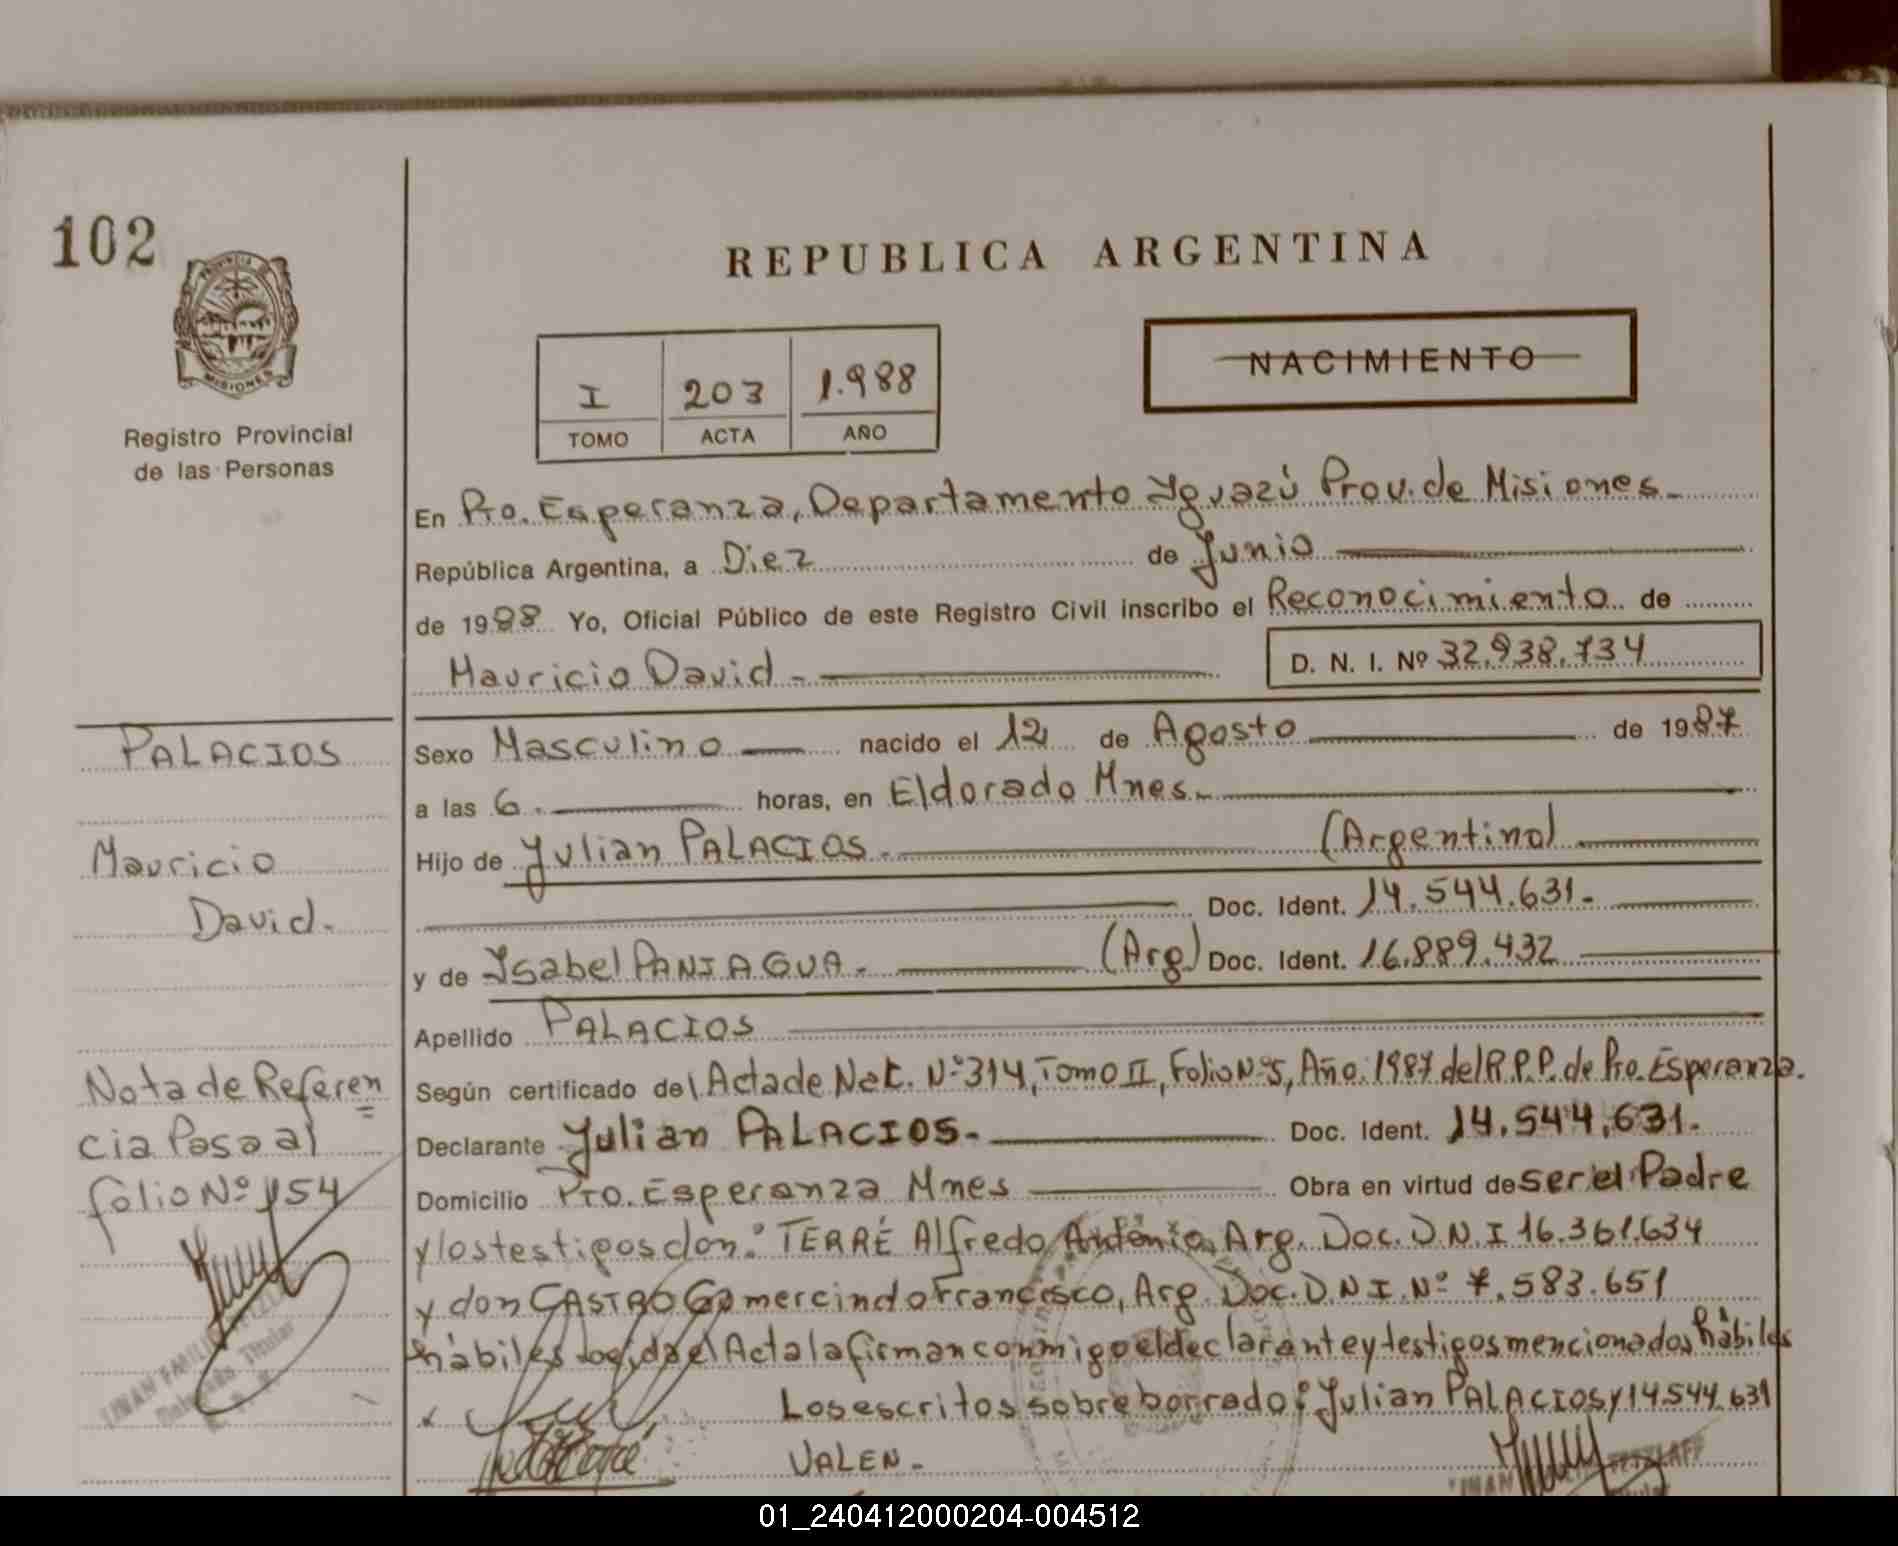 102
PROVINCIA DE
MISIONES
Registro Provincial
de las Personas
REPUBLICA ARGENTINA
I 203 1.988
TOMO ACTA AÑO
NACIMIENTO
En Pto. Esperanza, Departamento Yguazú Prov. de Misiones.
República Argentina, a Diez de Junio
de 1988 Yo, Oficial Público de este Registro Civil inscribo el Reconocimiento de
Mauricio David - D. N. I. Nº 32.938.734
PALACIOS
Sexo Masculino nacido el 12 de Agosto de 1987
a las 6. horas, en Eldorado Mnes.
Mauricio
Hijo de Julian PALACIOS. (Argentino)
David.
Doc. Ident. 14.544.631.
y de Ysabel PANIAGUA. (Arg) Doc. Ident. 16.889.432
Apellido PALACIOS
Nota de Referen
Según certificado del Acta de Nac. Nº 314, Tomo II, Folio Nº 5, Año: 1987 del R.P.P. de Pto. Esperanza.
cia Pasa al
Declarante Julian PALACIOS. Doc. Ident. 14.544.631.
folio Nº 154
Domicilio Pto. Esperanza Mnes Obra en virtud de ser el Padre
y los testigos don: TERRÉ Alfredo Antonio, Arg. Doc. D.N.I 16.361.634
y don CASTRO Gomercindo Francisco, Arg. Doc. D.N.I. Nº 7.583.651
hábiles Leída el Acta la firman conmigo el declarante y testigos mencionados hábiles
Los escritos sobre borrado: Julian PALACIOS y 14.544.631
VALEN.
Titular
01_240412000204-004512